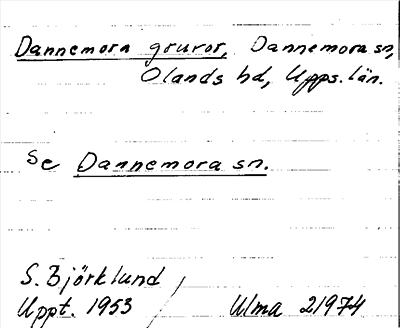 Dannemora gruvor, Dannemora sn,
Olands hd, Upps. län.
Se Dannemora sn.
S. Björklund
Uppt. 1953 / Ulma 21974